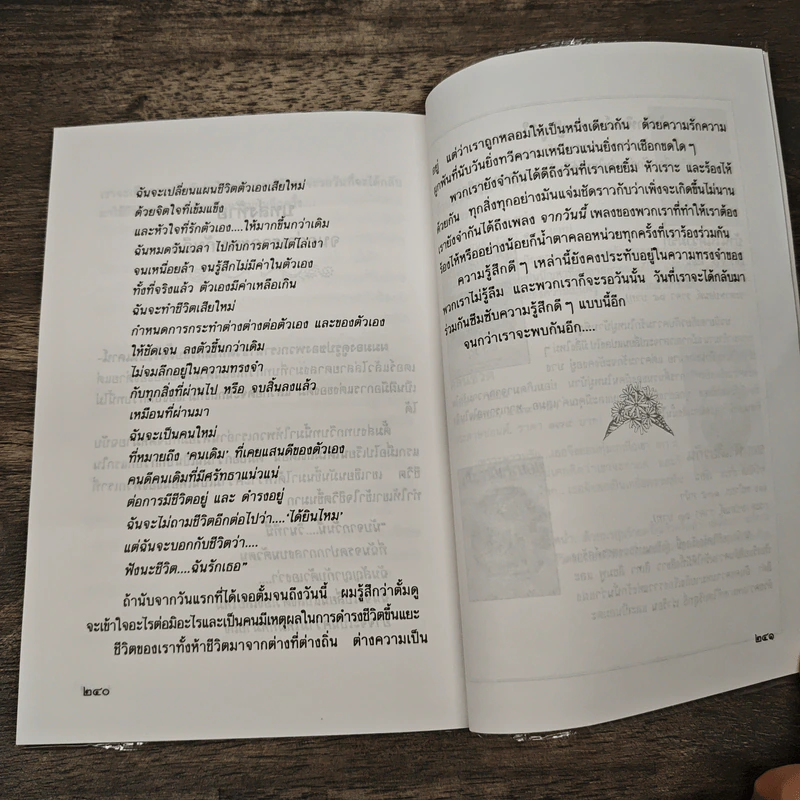 ฉันจะเปลี่ยนแผนชีวิตตัวเองเสียใหม่
ด้วยจิตใจที่เข้มแข็ง
และหัวใจที่รักตัวเอง....ให้มากขึ้นกว่าเดิม
ฉันหมดวันเวลา ไปกับการตามไต่ไล่เงา
จนเหนื่อยล้า จนรู้สึกไม่มีค่าในตัวเอง
ทั้งที่จริงแล้ว ตัวเองมีค่าเหลือเกิน
ฉันจะทำชีวิตเสียใหม่
กำหนดการกระทำต่างต่างต่อตัวเอง และของตัวเอง
ให้ชัดเจน ลงตัวขึ้นกว่าเดิม
ไม่จมลึกอยู่ในความทรงจำ
กับทุกสิ่งที่ผ่านไป หรือ จบสิ้นลงแล้ว
เหมือนที่ผ่านมา
ฉันจะเป็นคนใหม่
ที่หมายถึง 'คนเดิม' ที่เคยแสนดีของตัวเอง
คนดีคนเดิมที่มีศรัทธาแน่วแน่
ต่อการมีชีวิตอยู่ และ ดำรงอยู่
ฉันจะไม่ถามชีวิตอีกต่อไปว่า....'ได้ยินไหม'
แต่ฉันจะบอกกับชีวิตว่า....
ฟังนะชีวิต....ฉันรักเธอ"
ถ้านับจากวันแรกที่ได้เจอตั้มจนถึงวันนี้ ผมรู้สึกว่าตั้มดู
จะเข้าใจอะไรต่อมิอะไรและเป็นคนมีเหตุผลในการดำรงชีวิตขึ้นแยะ
ชีวิตของเราทั้งห้าชีวิตมาจากต่างที่ต่างถิ่น ต่างความเป็น
๒๔๐
อยู่ แต่ว่าเราถูกหลอมให้เป็นหนึ่งเดียวกัน ด้วยความรักความ
ผูกพันที่นับวันยิ่งทวีความเหนียวแน่นยิ่งกว่าเชือกขดใด ๆ
พวกเรายังจำกันได้ดีถึงวันที่เราเคยยิ้ม หัวเราะ และร้องไห้
ด้วยกัน ทุกสิ่งทุกอย่างมันแจ่มชัดราวกับว่าเพิ่งจะเกิดขึ้นไม่นาน
เรายังจำกันได้ถึงเพลง จากวันนี้ เพลงของพวกเราที่ทำให้เราต้อง
ร้องไห้หรืออย่างน้อยก็น้ำตาคลอหน่วยทุกครั้งที่เราร้องร่วมกัน
ความรู้สึกดี ๆ เหล่านี้ยังคงประทับอยู่ในความทรงจำของ
พวกเราไม่รู้ลืม และพวกเราก็จะรอวันนั้น วันที่เราจะได้กลับมา
ร่วมกันซึมซับความรู้สึกดี ๆ แบบนี้อีก
จนกว่าเราจะพบกันอีก....
๒๔๑